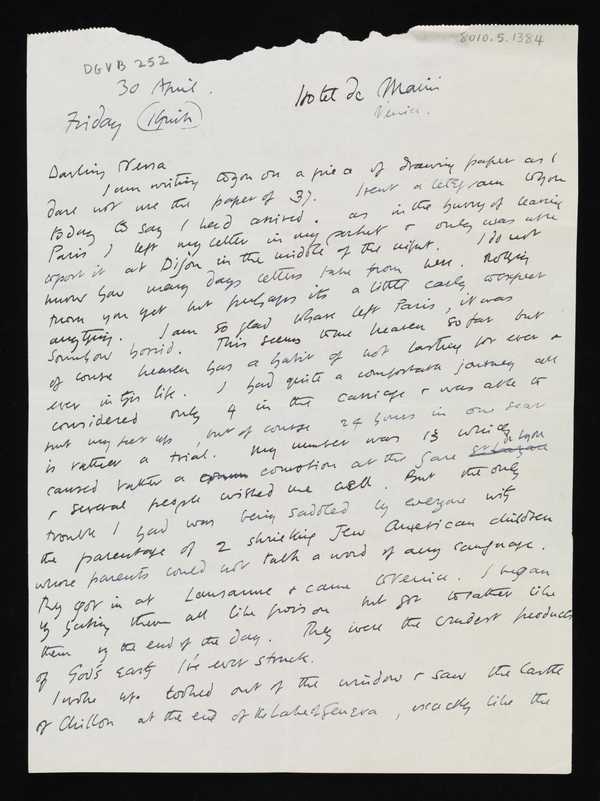 8010.5.1384
DGVB 252
30 April.
Hotel de Marini
Venice.
Friday (I think)
Darling Nessa
I am writing to you on a piece of drawing paper as I
dare not use the paper of 37. I sent a letter to you
today to say I had arrived. as in the hurry of leaving
Paris I left my letter in my pocket & only was able
to post it at Dijon in the middle of the night. I do not
know how many days letters take from here. nothing
from you yet but perhaps its a little early to expect
anything. I am so glad to have left Paris, it was
somehow horrid. This seems to me heaven so far but
of course heaven has a habit of not lasting for ever &
ever in this life. I had quite a comfortable journey all
considered only 4 in the carriage & was able to
put my feet up, but of course 24 hours in one seat
is rather a trial. My number was 13 which
caused rather a comotion at the Gare de Lyon
& several people wished me well. But the only
trouble I had was being saddled by everyone with
the parentage of 2 shrieking Jew American children
whose parents could not talk a word of any language.
They got in at Lausanne & came to Venice. I began
by hating them all like poison but got to rather like
them by the end of the day. They were the crudest products
of God's earth I've ever struck.
I woke up looked out of the window & saw the Castle
of Chillon at the end of the Lake of Geneva, exactly like the